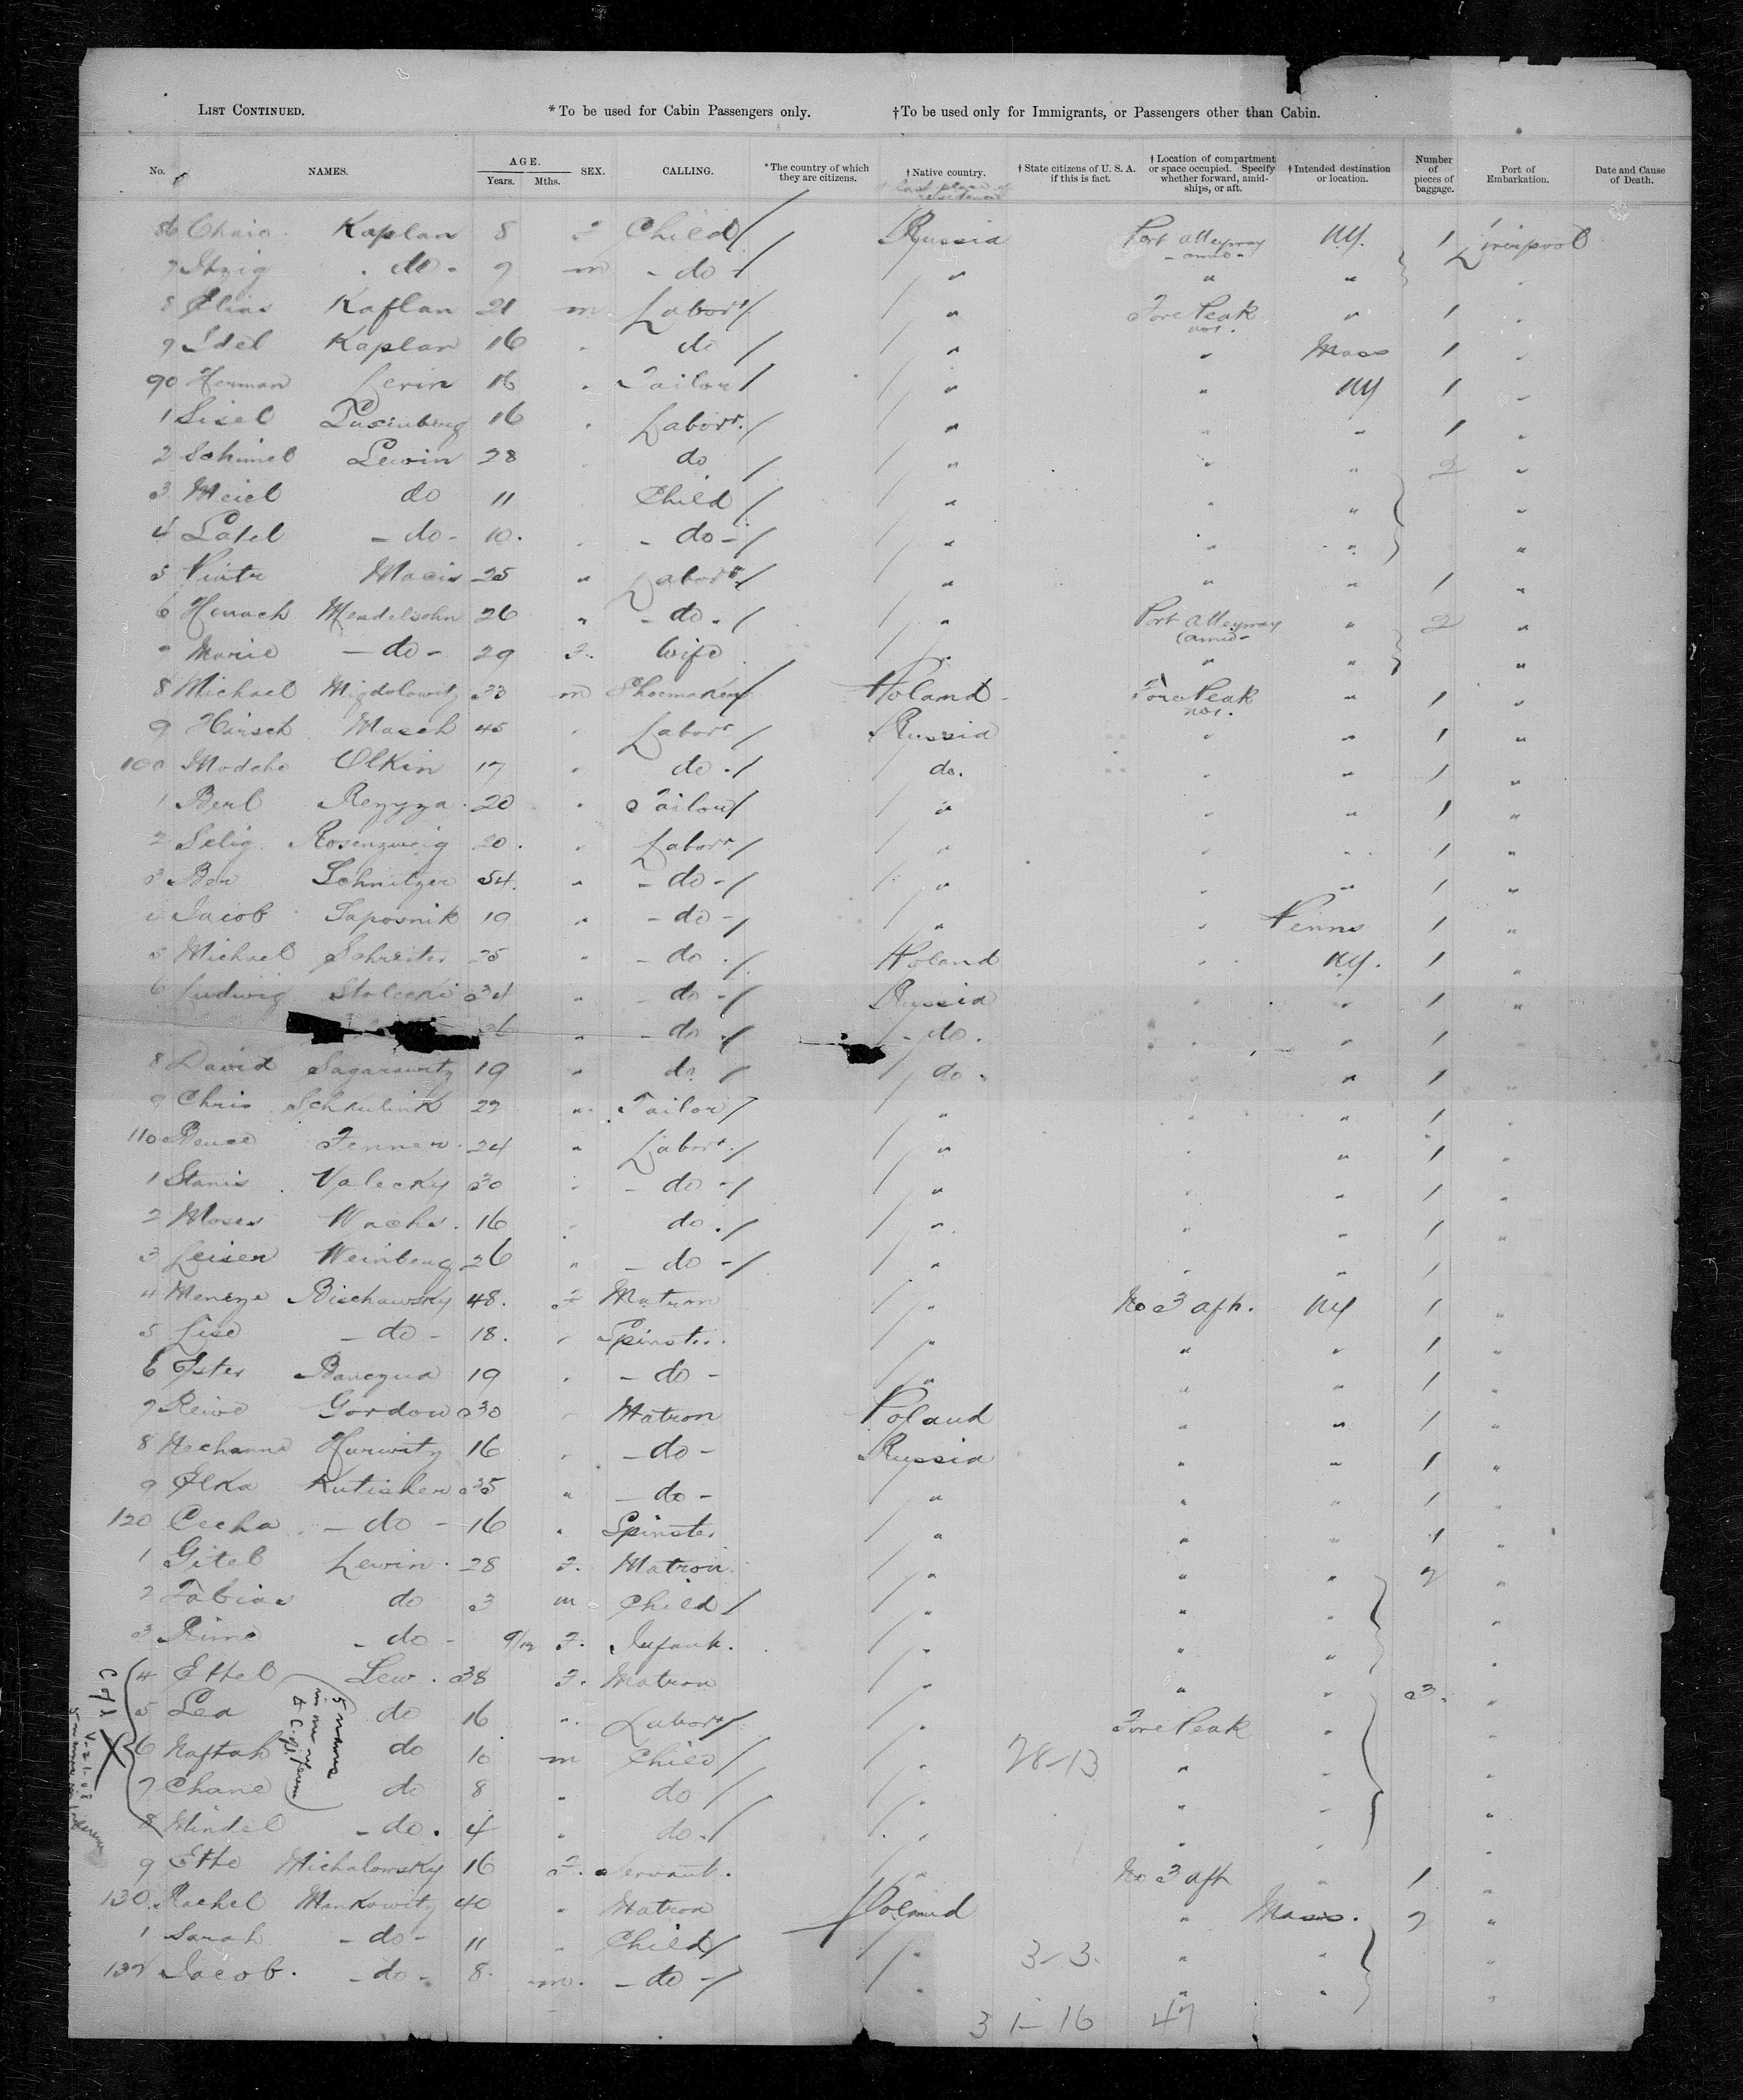 LIST CONTINUED. *To be used for Cabin Passengers only. †To be used only for Immigrants, or Passengers other than Cabin.
No. NAMES. AGE. Years. Mths. SEX. CALLING. *The country of which they are citizens. †Native country. †State citizens of U. S. A. if this is fact. †Location of compartment or space occupied. Specify whether forward, amidships, or aft. †Intended destination or location. Number of pieces of baggage. Port of Embarkation. Date and Cause of Death.
86 Kaplan 8 F Child / Russia Port Alleyway amid - NY. 1 Liverpool
7 Itzig do - 9 m - do / " " "
8 Elias Kaplan 21 m Labor / " Fore Peak " 1 "
9 Idel Kaplan 16 " do / " " Mass 1 "
90 Herman Levin 16 " Tailor / " " NY 1 "
1 Lisel 16 " Labor. / " " " 1 "
2 Schimel Lewin 28 do / " " " 2 "
3 Meiel do 11 Child / " " " "
4 do - 10. - do - / " " " "
5 25 " Labor / " " " 1 "
6 Henoch Mendelsohn 26 " - do - / " Port Alleyway (amid - " 2 "
7 Marie - do - 29 F. Wife " " " "
8 Michael Migdolowitz 33 m Shoemaker / Poland - Fore Peak " 1 "
9 Hirsch Masch 45 " Labor / Russia " " 1 "
100 Olkin 17 " do . / do. " " 1 "
1 Berl 20 " Tailor / " " " 1 "
2 Selig Rosenzweig 20. " Labor / " " " 1 "
3 Ber Schnitzer 54. " - do - / " " " 1 "
4 Jacob Saposnik 19 " - do - / " " Penns 1 "
5 Michael Schreiter 25 " - do . / Poland " NY. 1 "
6 Ludwig 34 " - do - / Russia " " 1 "
" - do - / - do. " " 1
8 David Sagarowitz 19 " do / do. " 1 "
9 Chris 22 " Tailor / " " " 1 "
110 24 " Labor. / " " " 1 "
1 Stanis Valecky 30 " - do - / " " " 1 "
2 Moses Wachs. 16 " do . / " " " 1 "
3 Leiser Weinberg 26 " - do - / " " " 1
4 48. F Matron " No 3 aft. NY 1 "
5 Lise - do - 18. " Spinster. " " " 1 "
6 Ester 19 " - do - " " " 1 "
7 Gordon 30 " Matron Poland " " 1 "
8 Nechanna Hurwitz 16 " - do - Russia " " 1 "
9 Elka Kutisker 35 " - do - " " " 1 "
120 - do - 16 " Spinster " " " 1 "
1 Gitel Lewin. 28 F. Matron. " " " 2 "
2 Tobias do 3 m Child / " " " "
3 - do - 9/12 F. Infant. " " " "
4 Ettel Lew. 38 F. Matron " " " 3. "
5 Lea do 16 " Labor / " Fore Peak " "
6 Naftah do 10 m Child / " 28-13 " " "
7 Chane do 8 " do / " " " "
8 Mindel - do. 4 " do. / " " " "
9 Ette Michalowsky 16 F. Servant. " No 3 aft " 1 "
130 Rachel Mankowitz 40 " Matron Poland " Mass. 2 "
1 Sarah - do - 11 " Child / " 3-3. " " "
132 Jacob. - do - 8. m. - do - / " " " "
31-16 47